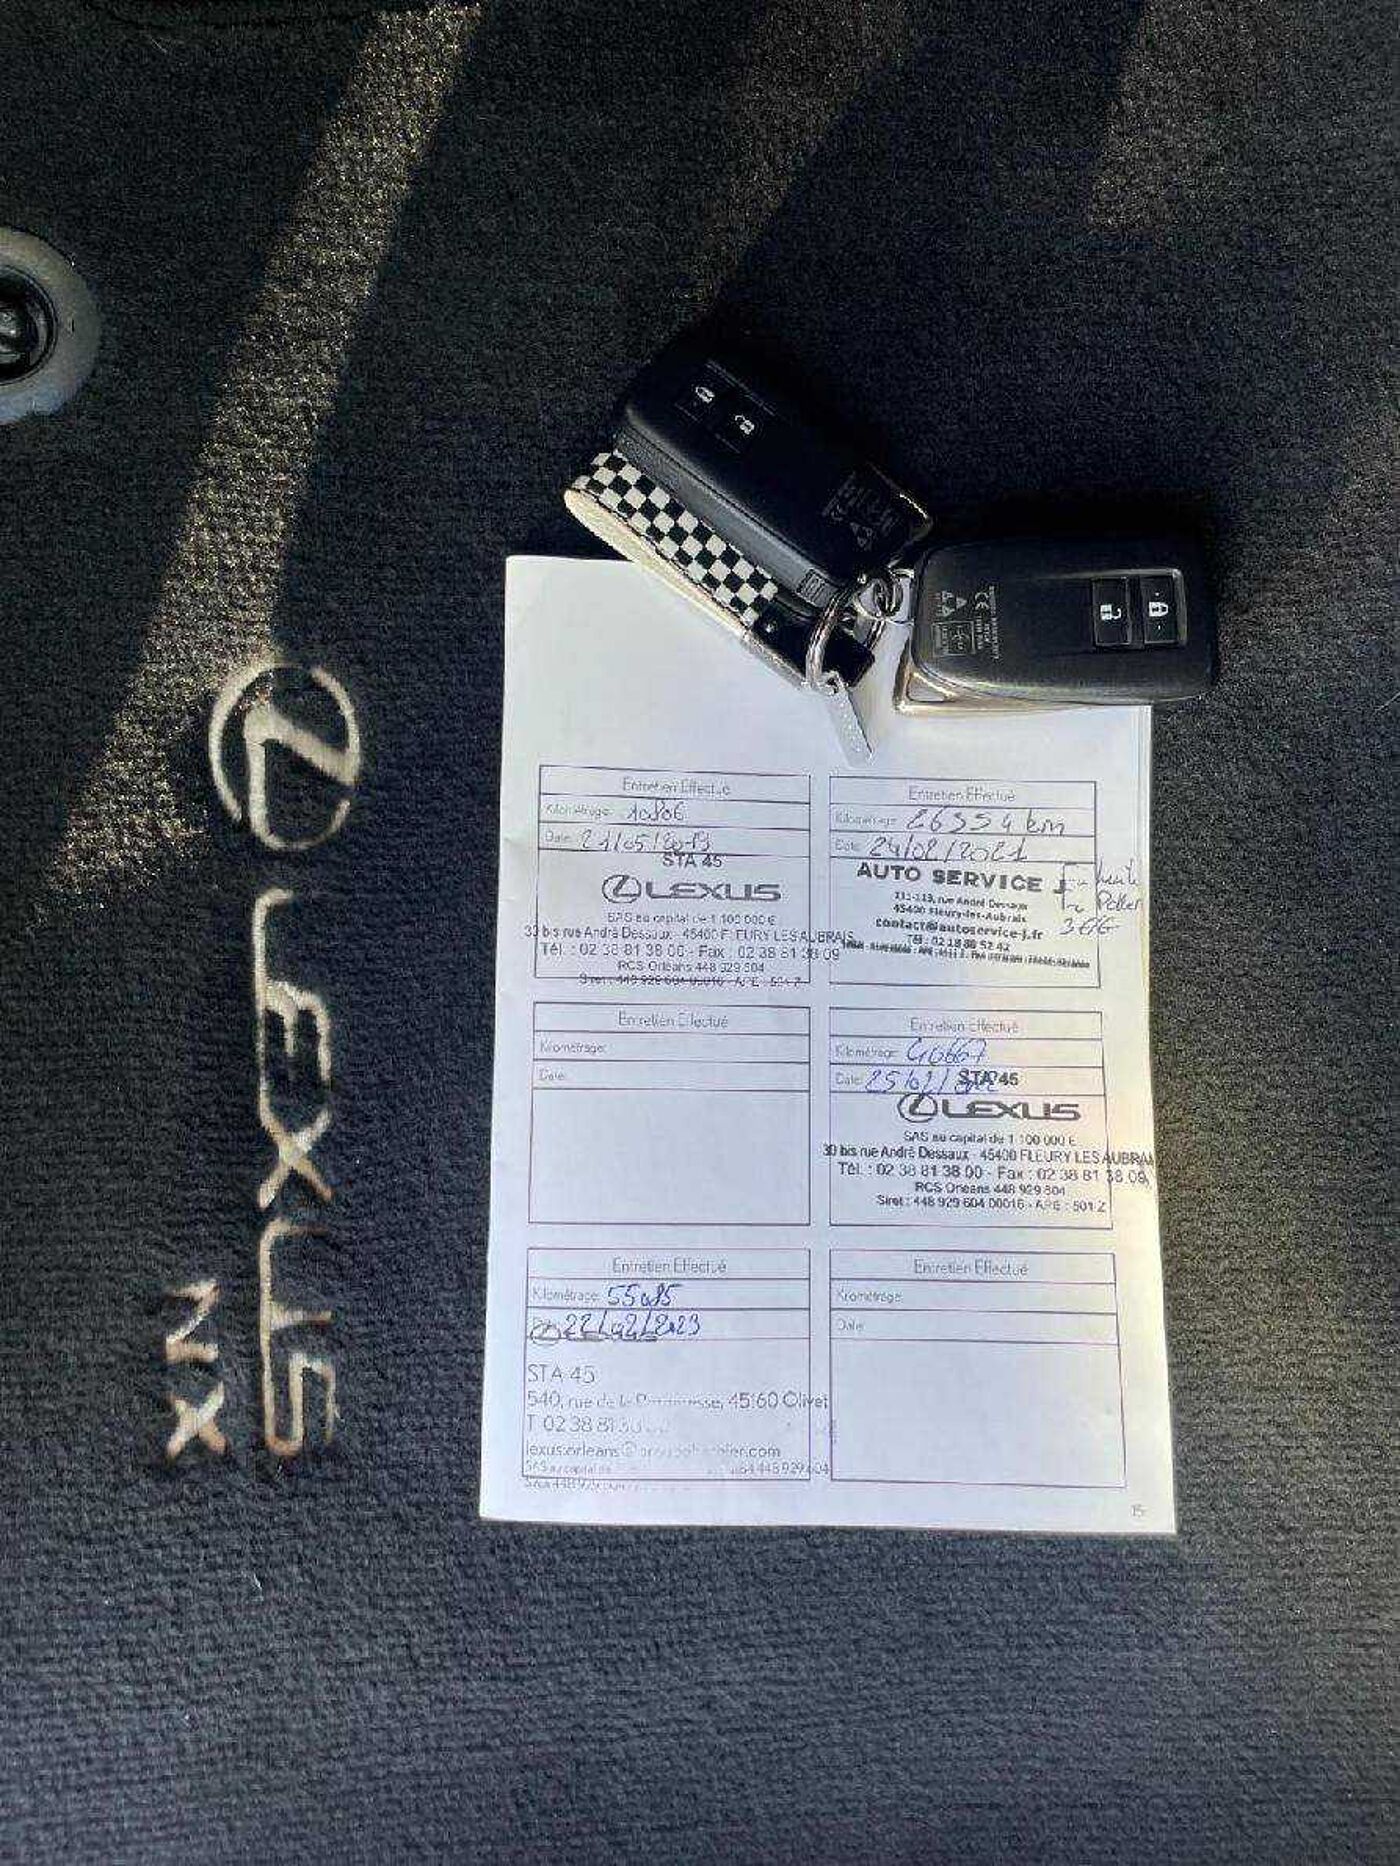 LEXUS
NX
Entretien Effectué
Kilométrage: 10806
Date: 21/05/2019
STA 45
LEXUS
SAS au capital de 1 100 000 €
30 bis rue André Dessaux - 45400 FLEURY LES AUBRAIS
Tél. : 02 38 81 38 00 - Fax : 02 38 81 38 09
RCS Orléans 448 929 604
Siret : 448 929 604 00016 - APE : 501 Z
Entretien Effectué
Kilométrage: 26554 km
Date: 24/02/2021
AUTO SERVICE J
111-113, rue André Dessaux
45400 Fleury-les-Aubrais
contact@autoservice-j.fr
Tél : 02 18 88 52 42
Entretien Effectué
Kilométrage:
Date:
Entretien Effectué
Kilométrage: 40667
Date: 25/02/
STA 45
LEXUS
SAS au capital de 1 100 000 €
30 bis rue André Dessaux - 45400 FLEURY LES AUBRAIS
Tél. : 02 38 81 38 00 - Fax : 02 38 81 38 09
RCS Orléans 448 929 604
Siret : 448 929 604 00016 - APE : 501 Z
Entretien Effectué
Kilométrage: 55085
22/02/2023
STA 45
540, rue de la 45160 Olivet
T 02 38 81 38
Entretien Effectué
Kilométrage:
Date:
15